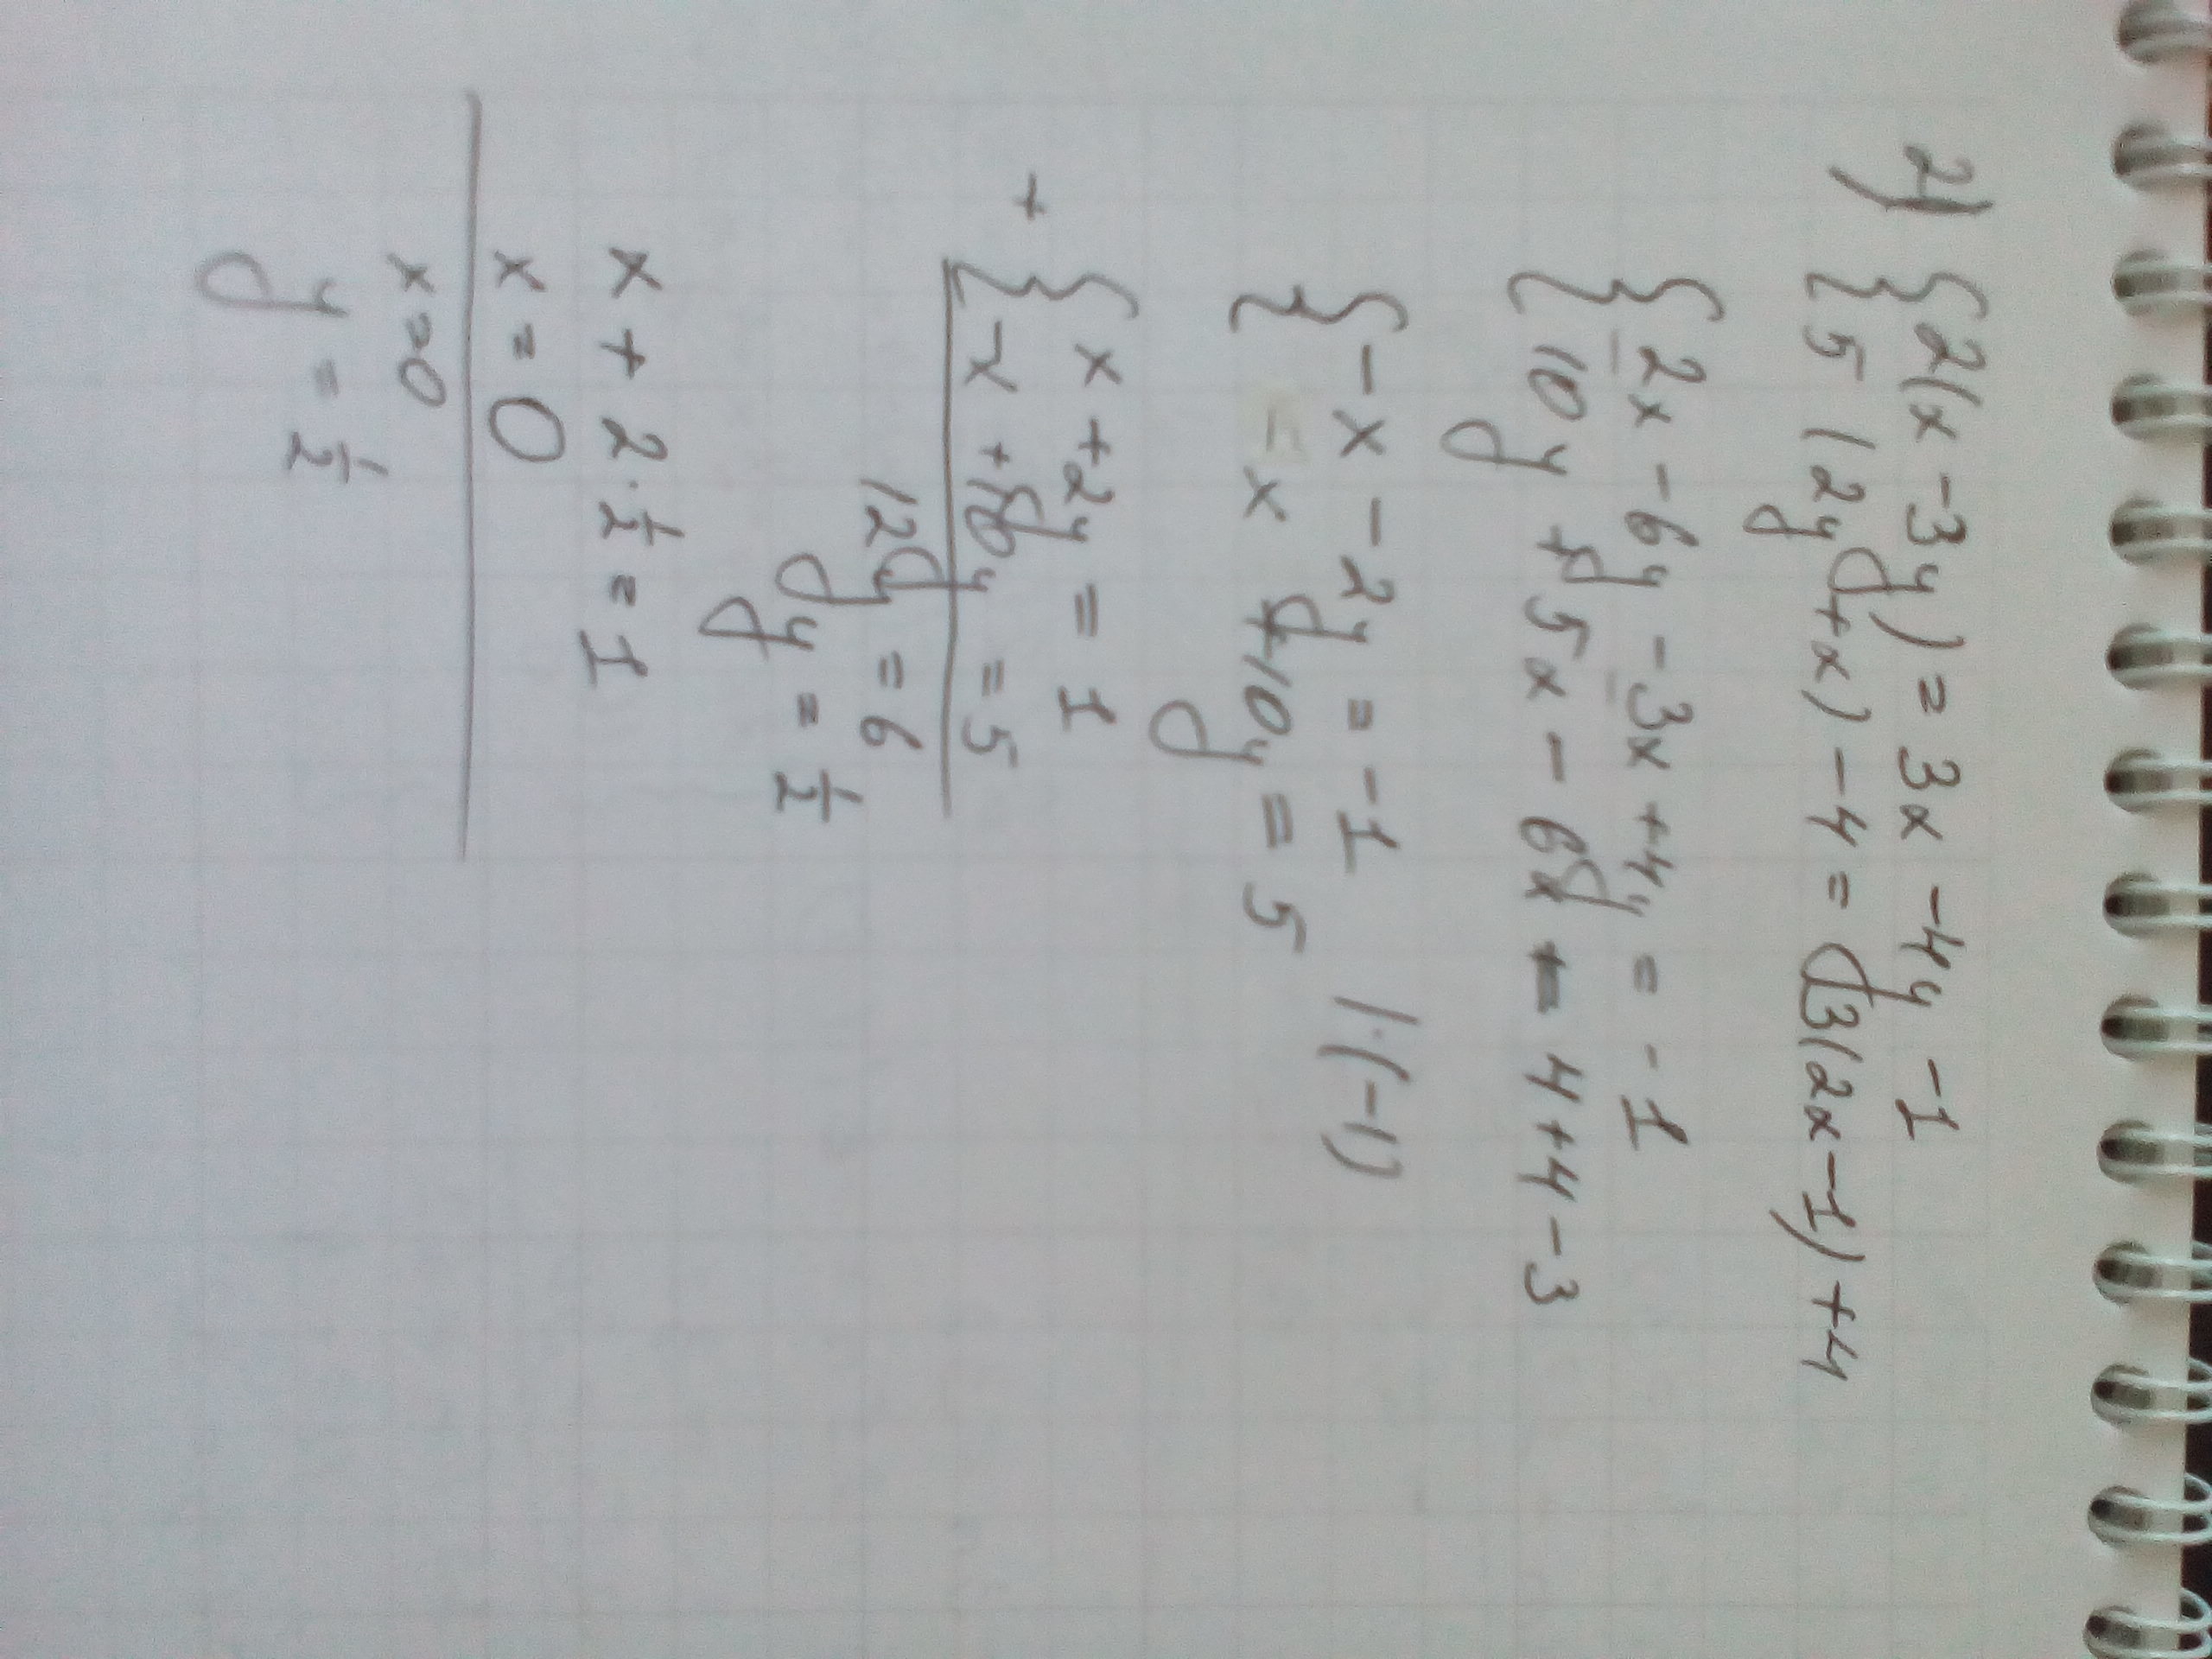 2) { 2(x - 3y) = 3x - 4y - 1
5(2y + x) - 4 = 3(2x - 1) + 4
{ 2x - 6y - 3x + 4y = - 1
10y + 5x - 6x = 4 + 4 - 3
{ - x - 2y = - 1 | · (-1)
- x + 10y = 5
+ { x + 2y = 1
- x + 10y = 5
12y = 6
y = 1/2
x + 2 · 1/2 = 1
x = 0
x = 0
y = 1/2